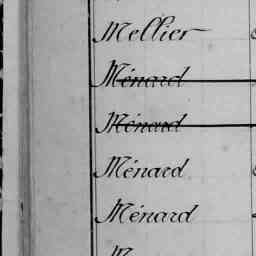 Mellier
Ménard
Ménard
Ménard
Ménard